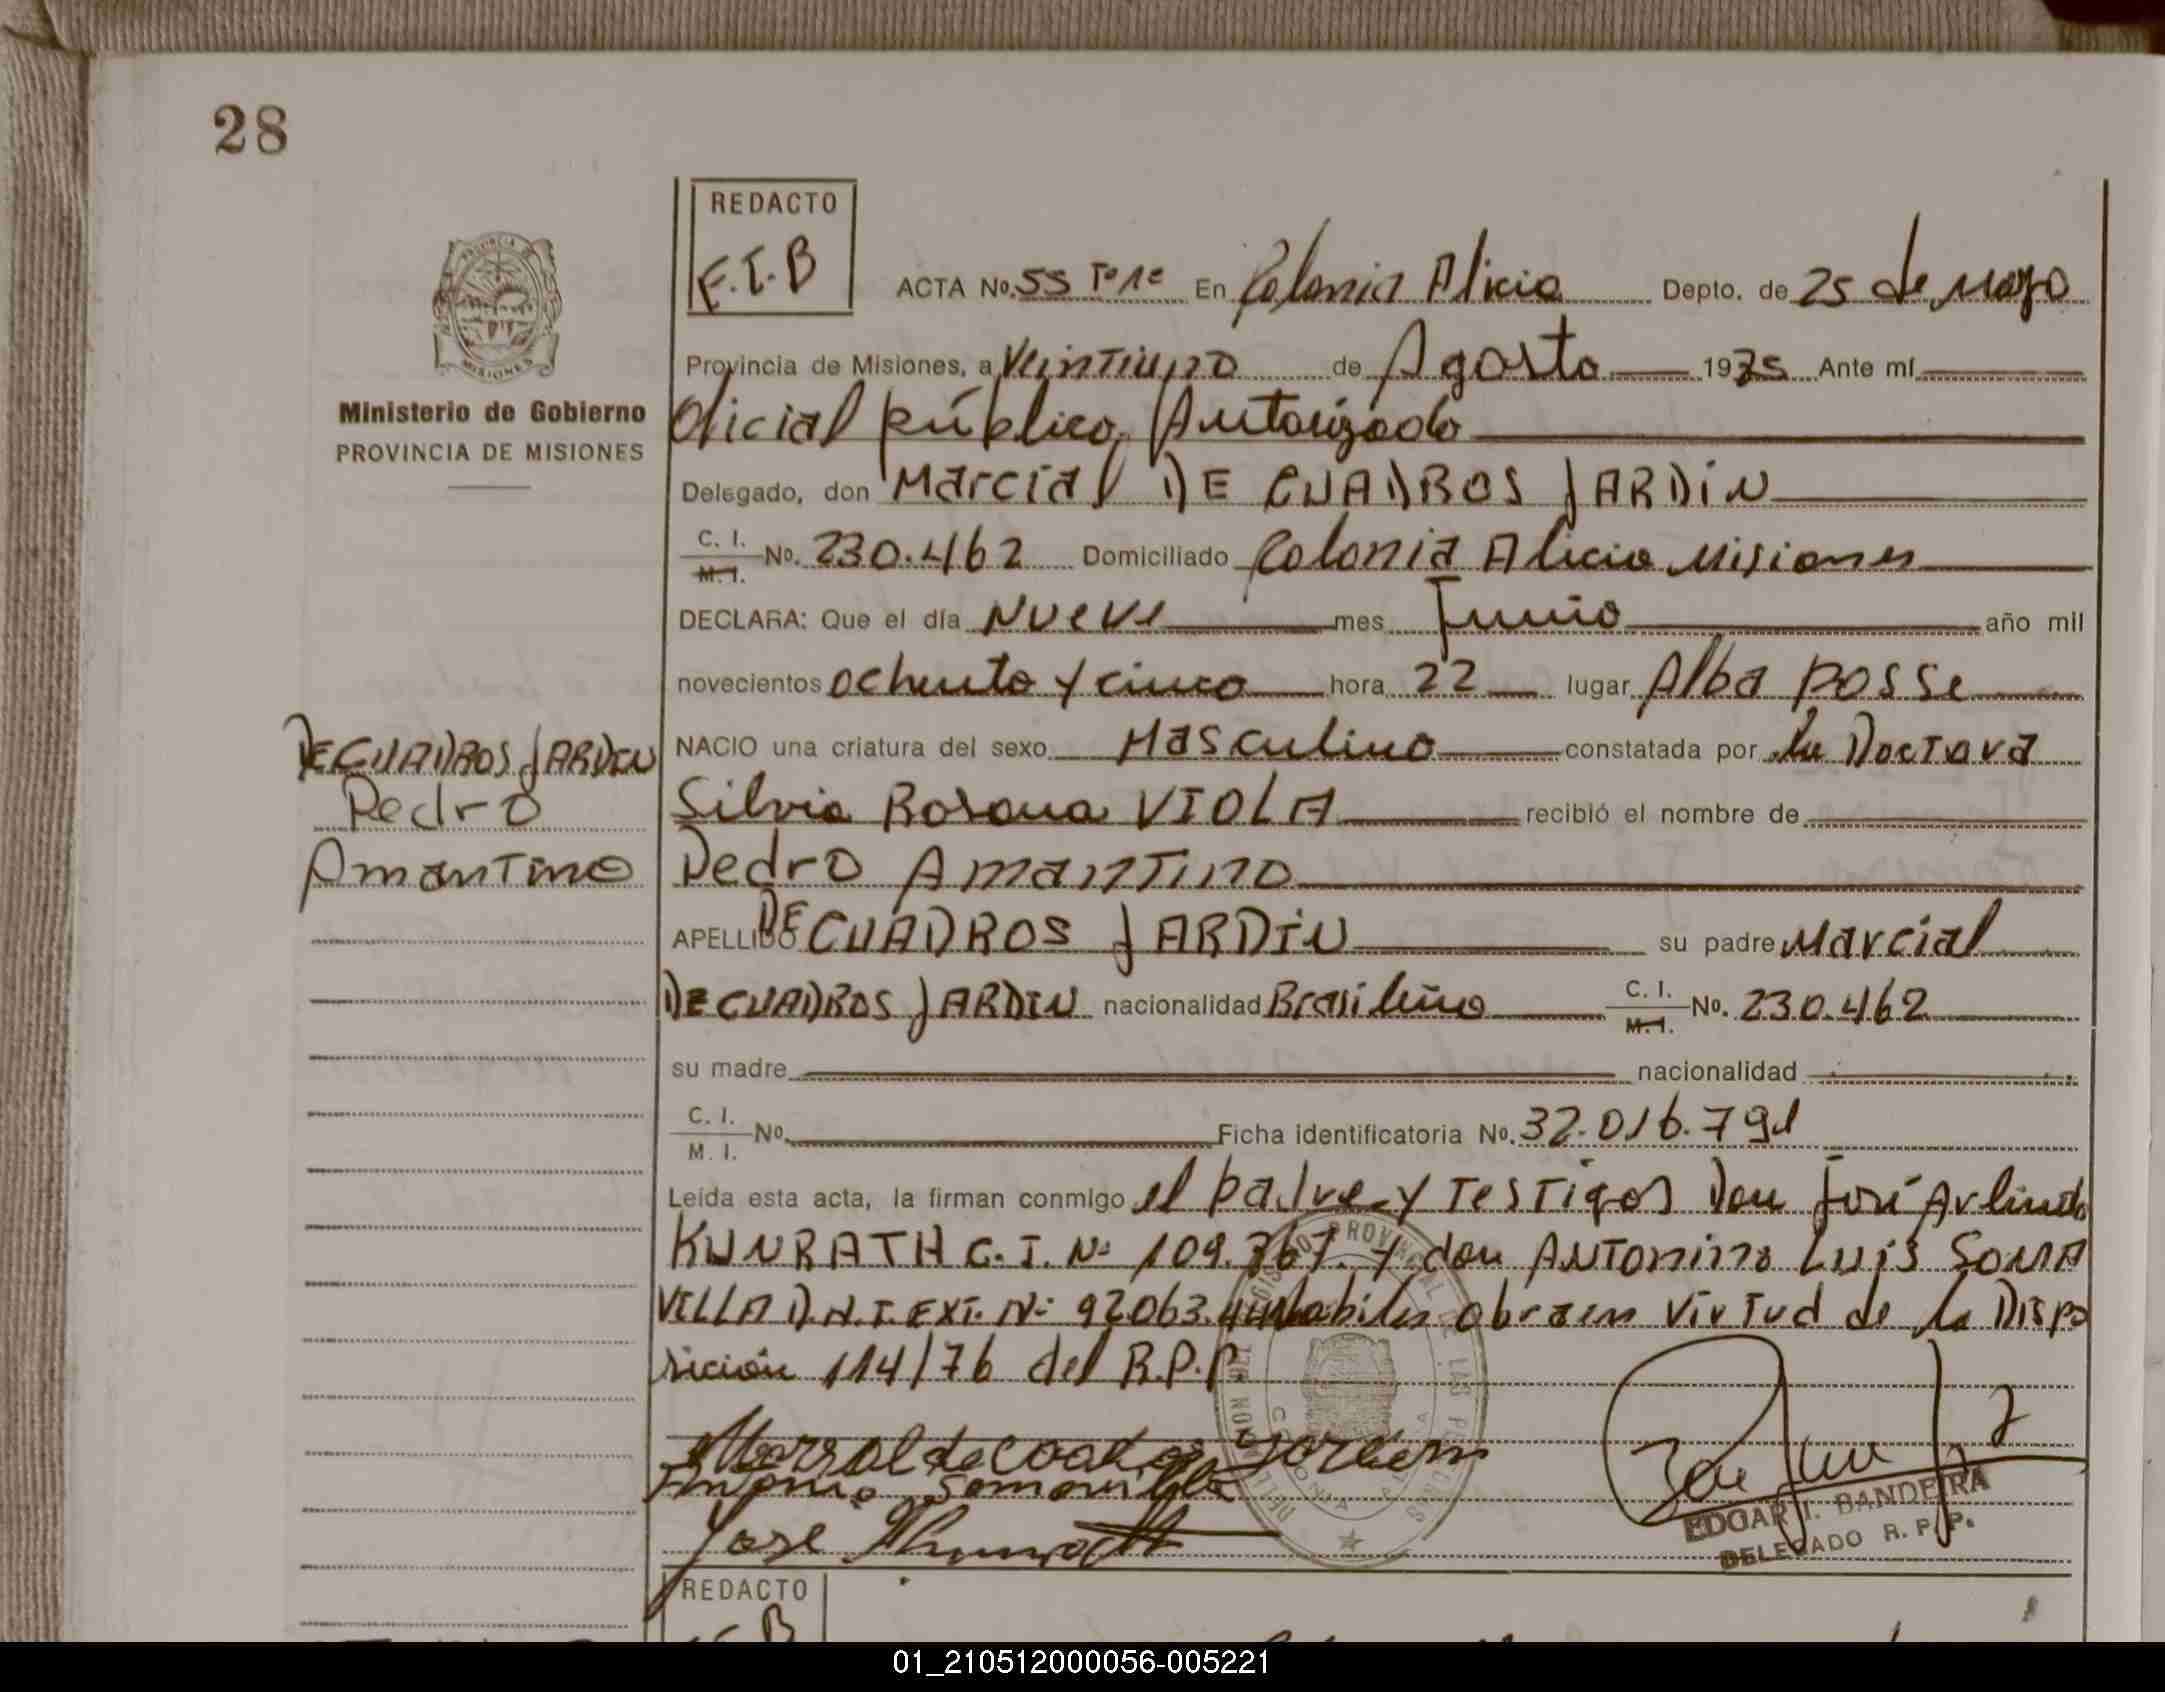 28
REDACTO
E.I.B
ACTA No. 55 Tº 1º En Colonia Alicia Depto. de 25 de Mayo
Provincia de Misiones, a Veintiuno de Agosto 1985 Ante mí
Oficial Público Autorizado
Delegado, don Marcial DE CUADROS JARDIN
C. I.
M. I. No. 230.462 Domiciliado Colonia Alicia Misiones
DECLARA: Que el día Nueve mes Junio año mil
novecientos ochenta y cinco hora 22 lugar Alba Posse
NACIO una criatura del sexo Masculino constatada por la Doctora
Silvia Rosana VIOLA recibió el nombre de
Pedro Amantino
APELLIDO DE CUADROS JARDIN su padre Marcial
DE CUADROS JARDIN nacionalidad Brasileño C. I.
M. I. No. 230.462
su madre nacionalidad
C. I.
M. I. No. Ficha identificatoria No. 32.016.791
Leída esta acta, la firman conmigo el padre y Testigos Don José Arlindo
KUNRATH C.I. Nº 109.767. y don ANTONINO Luis SOMA
VILLA D.N.I. EXT. Nº 92063. habiles obra en virtud de la Dispo
sición 114/76 del R.P.P
Antonio Somavilla
Jose Kunratt
EDGAR I. BANDEIRA
DELEGADO R. P. P.
PROVINCIA DE
MISIONES
Ministerio de Gobierno
PROVINCIA DE MISIONES
DE CUADROS JARDIN
Pedro
Amantino
REDACTO
01_210512000056-005221